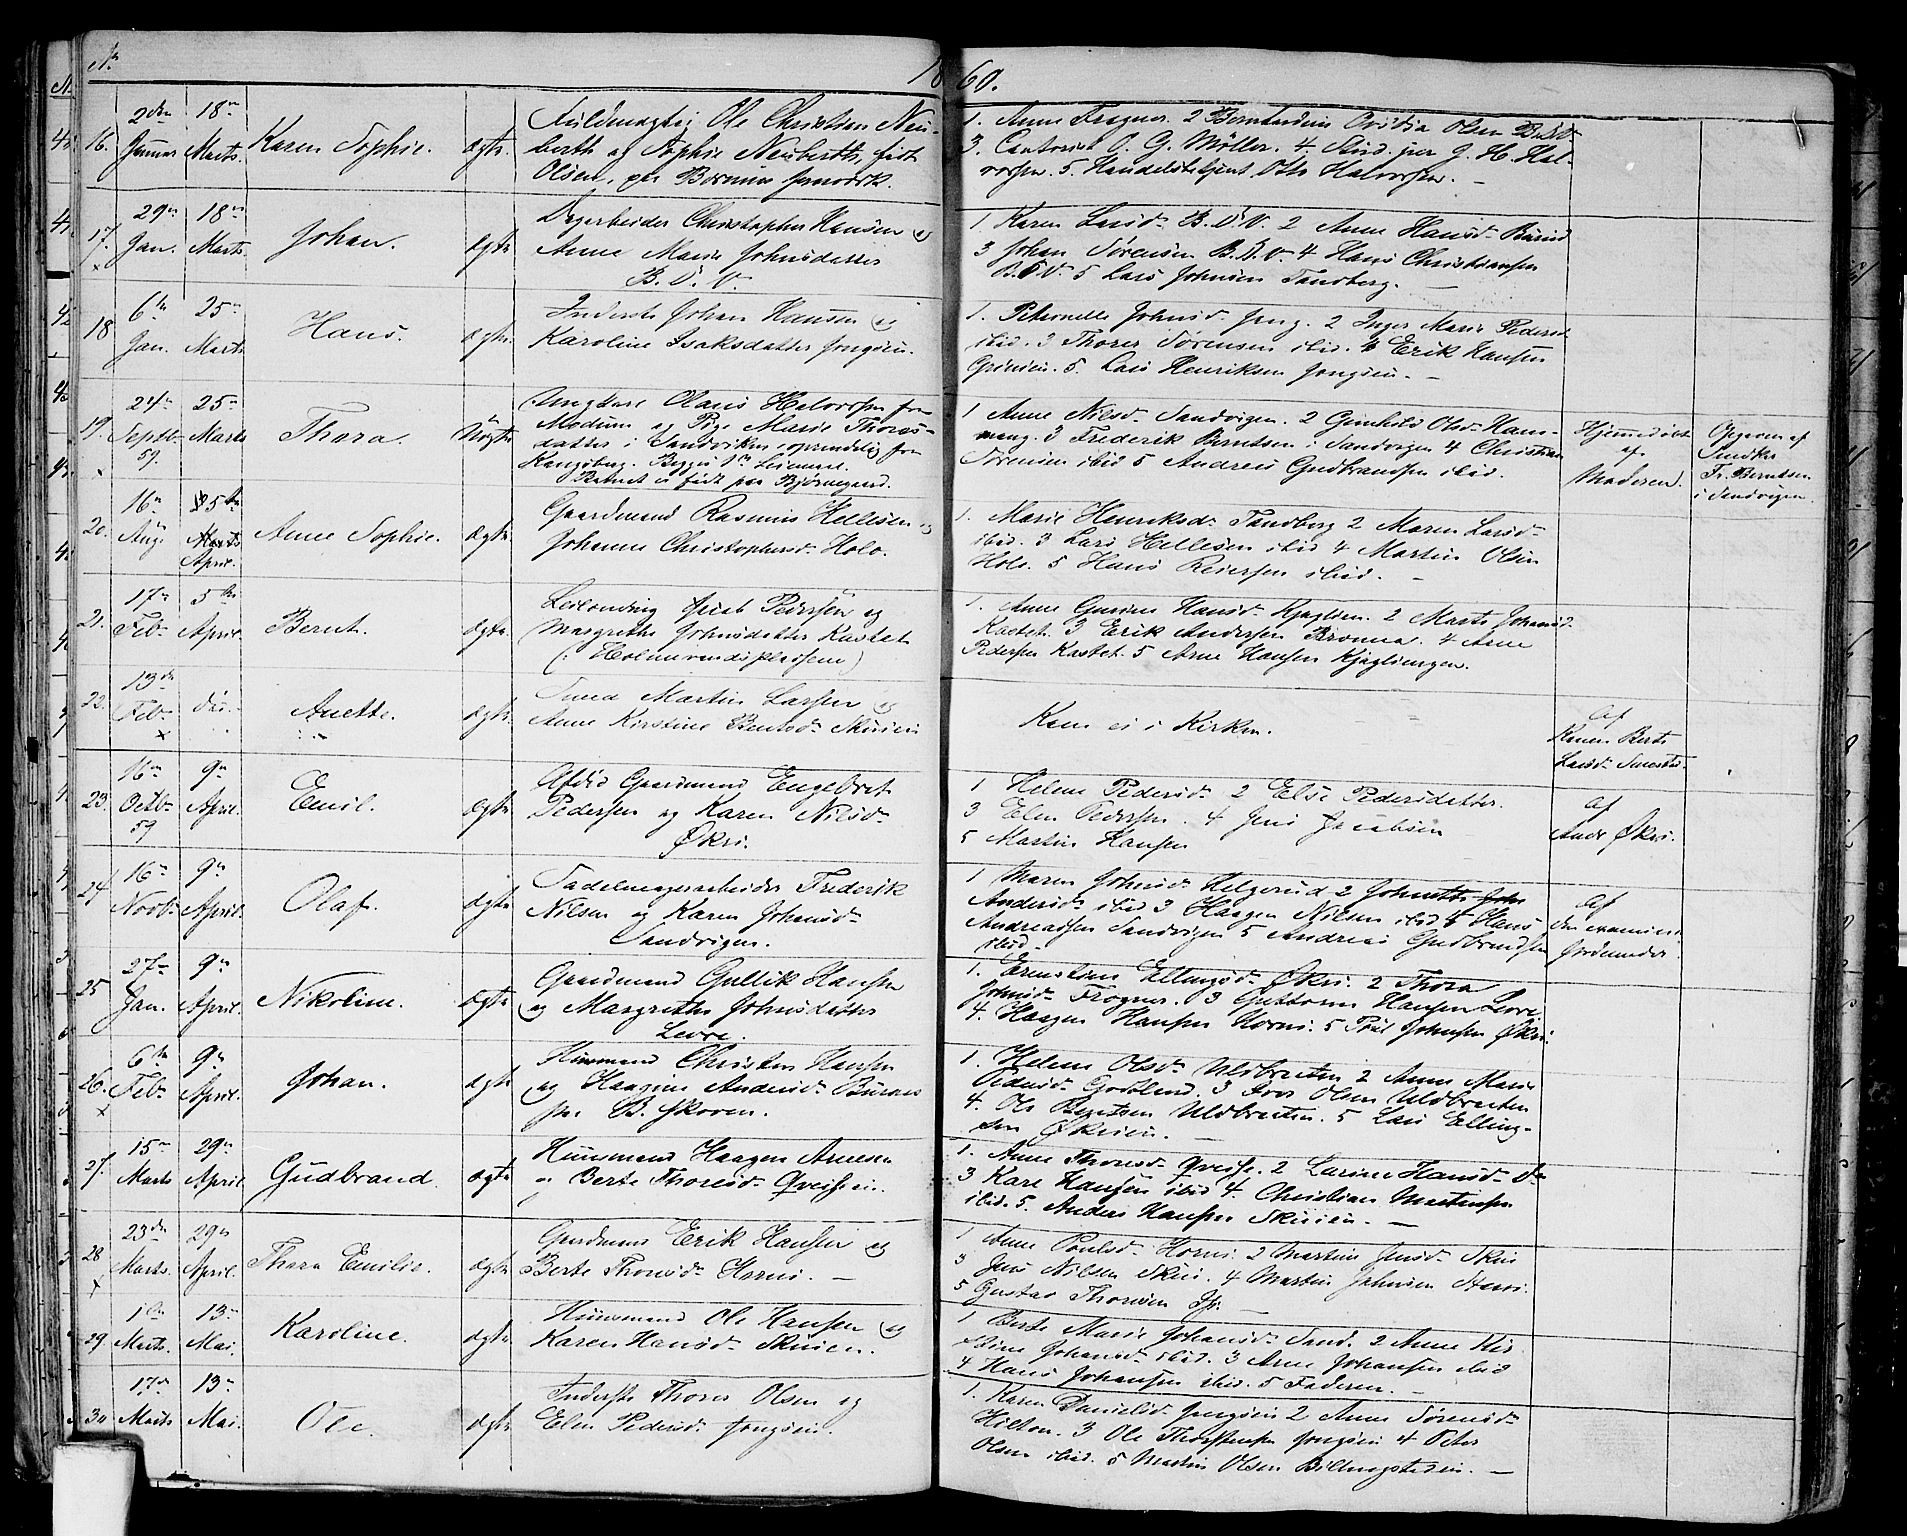 No 1860.
16. 2den Januar 18n Marts. Karen Sophie. ægte.
Fuldmægtig Ole Christian Neu-
berth og Sophie Neuberth, født
Olsen, paa Bærums Jernværk.
1. Anne Frogner. 2 Bernhardine Ovidia Olsen B.
3. Cantorist O. G. Möller. 4. Stud. jur G. H. Hal-
vorsen. 5. Handelsbetjent Otto Halvorsen. —
17. x 29n Jan. 18n Marts Johan. ægte
Dagarbeider Christopher Hansen og
Anne Marie Johnsdatter
B. V.
1. Karen Larsd. B. V. 2 Anne Hansd.
3 Johan Sørensen B. V. 4 Hans Christiansen
B. V. 5 Lars Johnsen Tandberg. —
18 6te Jan. 25n Marts Hans. ægte.
Inderst Johan Hansen og
Karoline Isaksdatter Jongsen.
1. Petronelle Johnsd. Jong. 2 Inger Marie Pedersd.
ibid. 3 Thorer Sørensen ibid. 4 Erik Hansen
Grinien. 5. Lars Henriksen Jongsen. —
19. x 24n Septbr 59. 25n Marts Thora. Uægte
Ungkarl Olaus Halvorsen fra
Modum og Pige Marie Thores-
datter i Sandviken oprindelig fra
Kongsberg. Begges 1ste Leiermaal.
Barnet er født paa Bjørnegaard.
1 Anne Nilsd. Sandvigen. 2 Gunhild Olsd. Ham-
mang. 3 Frederik Berntsen i Sandvigen 4 Christian
Sørensen ibid 5 Andreas Gudbrandsen ibid.
Hjemmedøbt af Moderen.
Opgiven af Fr. Berntsen i Sandvigen.
20. 16n Aug. 5te Marts April. Anne Sophie. ægte.
Gaardmand Rasmus Hellesen og
Johanne Christophersd. Holo.
1. Marie Henriksd. Tandberg 2 Maren Larsd.
ibid. 3 Lars Hellesen ibid 4 Martin Olsen
Holo. 5 Hans Reiersen ibid. —
21. 17n Feb. 5te April. Bernt. ægte.
Leilending Jacob Pedersen og
Margrethe Johnsdatter Kastet
(: Holmerendspladsene)
1. Anne Gurine Hansd. Kjaglien. 2 Marte Johnsd.
Kastet. 3 Erik Andersen Bronna. 4 Arne
Pedersen Kastet. 5 Arne Hansen Kjaglingen.
22. 13de Feb. x do. Anette. ægte.
Smed Martin Larsen og
Anne Kirstine Bentsd. Skuien
Kom ei i Kirken.
Af Konen Berte Larsd.
23. 16n Octbr 59 9n April. Emil. ægte
Afdøde Gaardmand Engebret
Pedersen og Karen Nilsd.
Økri.
1 Helene Pedersd. 2 Else Pedersdatter.
3 Elen Pedersen. 4 Jens Jacobsen
5 Martin Hansen
Af Økri.
24 16n Novb. 9n April. Olaf. ægte
Sadelmagerarbeider Frederik
Nilsen og Karen Johansd.
Sandvigen.
1 Maren Johnsd. Helgerud 2 Johnette
Andersd. ibid 3 Haagen Nilsen ibid 4 Hans
Andreassen Sandvigen 5 Andreas Gudbrandsen
ibid.
Af den examinerede Jordemoder.
25 27n Jan. 9n April. Nikoline. ægte
Gaardmand Gullik Hansen
og Margrethe Johnsdatter
Levre.
1. Ernstine Ellingsd. Økri. 2 Thora
Johnsd. Frogner. 3 Guttorm Hansen Levre
4. Haagen Hansen Horni. 5 Poul Johnsen Økri.
26. x 6te Feb. 9n April. Johan. ægte
Huusmand Christen Hansen
og Haagine Andersd.
B. Skoven.
1. Helene Olsd. Uldbraaten 2 Anne Marie
Pedersd. Godthend. 3 Iver Olsen Uldbraaten
4. Ole Berntsen Uldbraaten. 5 Lars Elling-
sen Økrien. —
27. 15n Marts 29n April Gudbrand. ægte
Huusmand Haagen Arnesen
og Berte Thoresd.
1. Anne Thoresd. 2 Larine Hansd. Do
3 Kari Hansen ibid 4. Christian Martinsen
ibid. 5. Anders Hansen Skuien. —
28 x 23de Marts. 29n April. Thora Emilie. ægte
Gaardmand Erik Hansen og
Berte Thoresd. Horni. —
1 Anne Paulsd. Horni. 2 Martine Jensd. Skui
3 Jens Nilsen Skui. 4 Martin Johnsen
5 Gustav Thoresen —
29. 1te Marts. 13n Mai. Karoline. ægte
Huusmand Ole Hansen og
Karen Hansd. Skuien.
1 Berte Marie Johansd. Sand. 2 Anne Kir-
stine Johansd. ibid. 3 Arne Johansen ibid
4 Hans Johansen ibid. 5 Faderen. —
30 17n Marts 13n Mai. Ole. ægte
Inderste Thorer Olsen og
Elen Pedersd. Jongsen.
1. Karen Danielsd. Jongsen 2 Anne Sørensd.
Hilton. 3 Ole Thorstensen Jongsen 4 Peter
Olsen ibid. 5 Martin Olsen Billingstaden. —